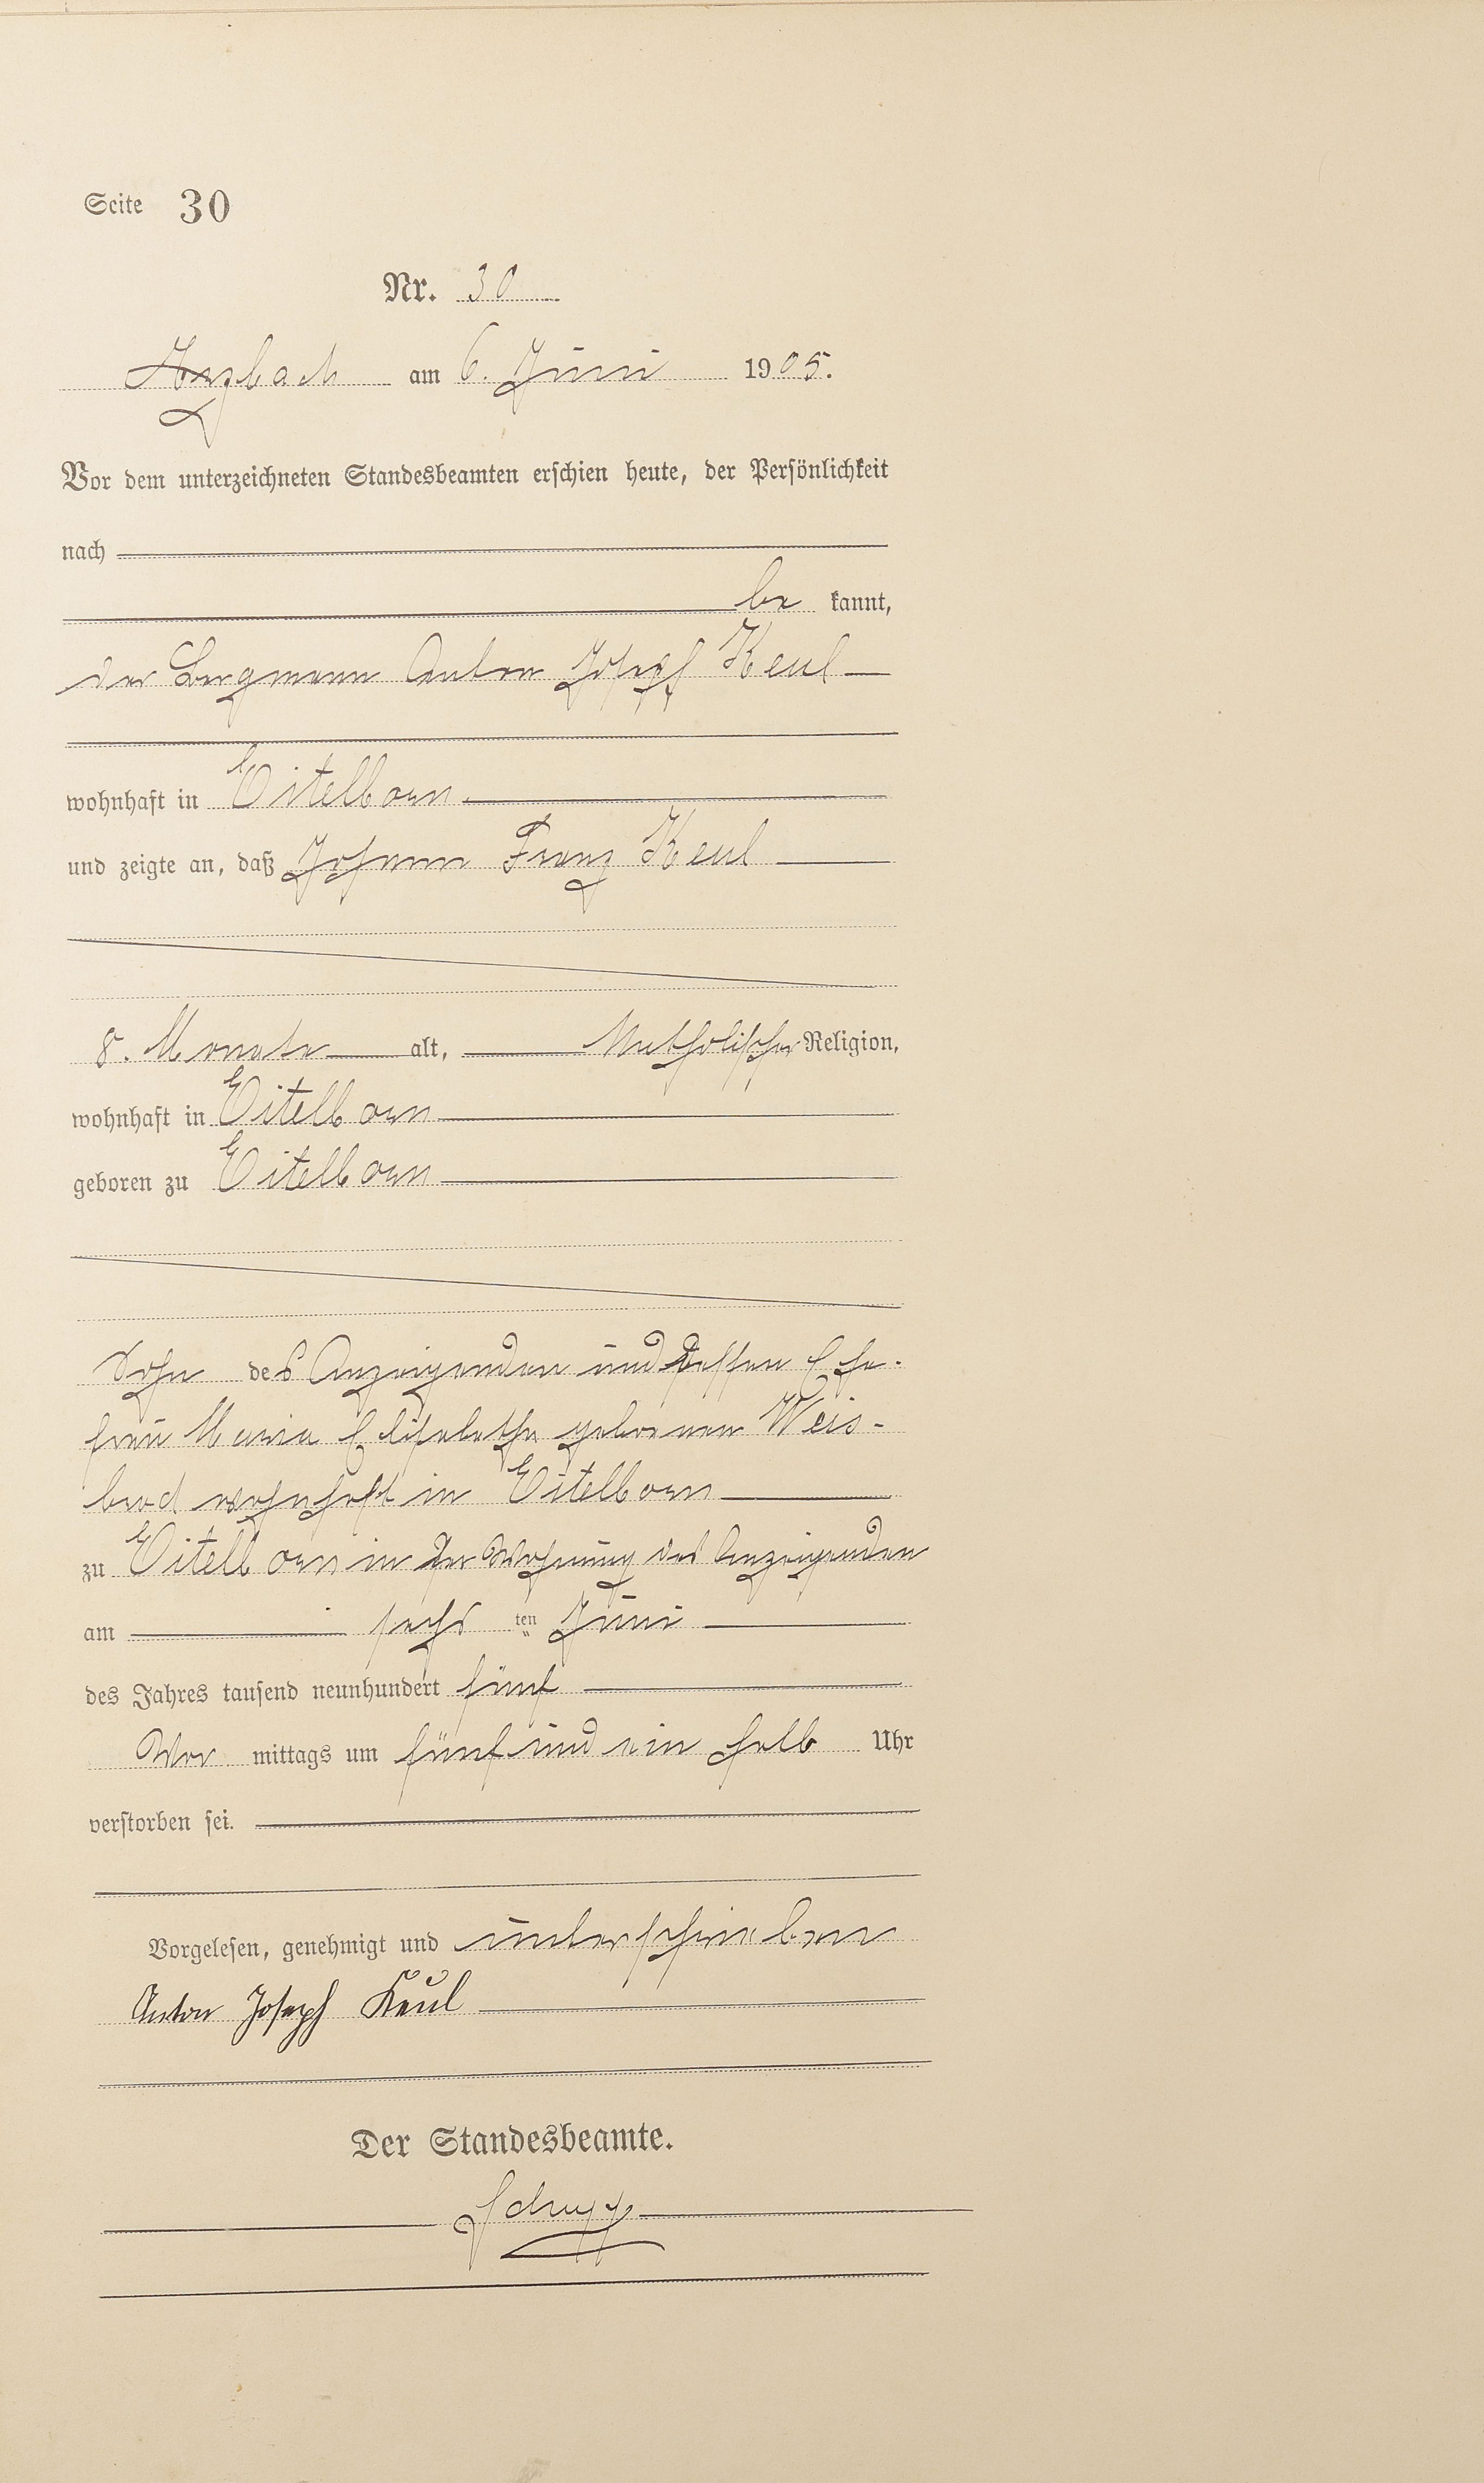 Seite 30
Nr. 30
Arzbach am 6. Juni 1905.
Vor dem unterzeichneten Standesbeamten erschien heute, der Persönlichkeit
nach
be kannt,
der Bergmann Anton Josef Keul
wohnhaft in Eitelborn
und zeigte an, daß Johann Franz Keul
8. Monate alt, katholischer Religion,
wohnhaft in Eitelborn
geboren zu Eitelborn
Sohn des Anzeigenden und dessen Ehe-
frau Maria Elisabetha geborenen Weis-
brod wohnhaft in Eitelborn
zu Eitelborn in der Wohnung des Anzeigenden
am sechs ten Juni
des Jahres tausend neunhundert fünf
Vor mittags um fünf und ein halb Uhr
verstorben sei.
Vorgelesen, genehmigt und unterschrieben
Anton Joseph Keul
Der Standesbeamte.
Schupp